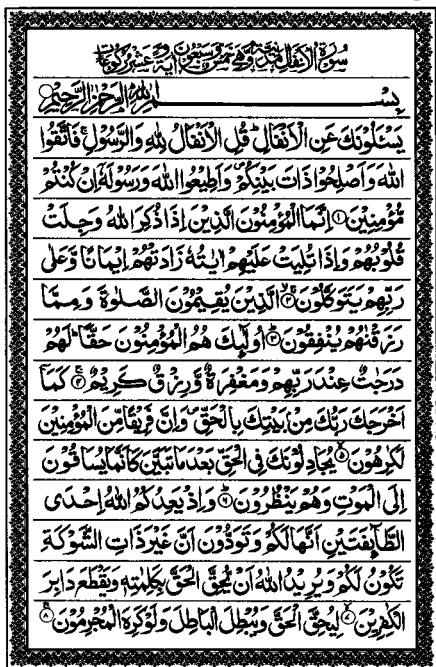 سُوْرَةُ الْاَنْفَالِ مَدَنِيَّةٌ وَّهِيَ خَمْسٌ وَّسَبْعُوْنَ اٰيَةً وَّعَشْرُ رُكُوْعَاتٍ
بِسْمِ اللّٰهِ الرَّحْمٰنِ الرَّحِيْمِ
يَسْـَٔلُوْنَكَ عَنِ الْاَنْفَالِ ؕ قُلِ الْاَنْفَالُ لِلّٰهِ وَالرَّسُوْلِ ۚ فَاتَّقُوا
اللّٰهَ وَاَصْلِحُوْا ذَاتَ بَيْنِكُمْ ۪ وَاَطِيْعُوا اللّٰهَ وَرَسُوْلَهٗۤ اِنْ كُنْتُمْ
مُّؤْمِنِيْنَ ۝۱ اِنَّمَا الْمُؤْمِنُوْنَ الَّذِيْنَ اِذَا ذُكِرَ اللّٰهُ وَجِلَتْ
قُلُوْبُهُمْ وَاِذَا تُلِيَتْ عَلَيْهِمْ اٰيٰتُهٗ زَادَتْهُمْ اِيْمَانًا وَّعَلٰى
رَبِّهِمْ يَتَوَكَّلُوْنَ ۝۲ الَّذِيْنَ يُقِيْمُوْنَ الصَّلٰوةَ وَمِمَّا
رَزَقْنٰهُمْ يُنْفِقُوْنَ ۝۳ اُولٰٓئِكَ هُمُ الْمُؤْمِنُوْنَ حَقًّا ؕ لَهُمْ
دَرَجٰتٌ عِنْدَ رَبِّهِمْ وَمَغْفِرَةٌ وَّرِزْقٌ كَرِيْمٌ ۝۴ كَمَاۤ
اَخْرَجَكَ رَبُّكَ مِنْۢ بَيْتِكَ بِالْحَقِّ ۪ وَاِنَّ فَرِيْقًا مِّنَ الْمُؤْمِنِيْنَ
لَكٰرِهُوْنَ ۝۵ يُجَادِلُوْنَكَ فِي الْحَقِّ بَعْدَ مَا تَبَيَّنَ كَاَنَّمَا يُسَاقُوْنَ
اِلَى الْمَوْتِ وَهُمْ يَنْظُرُوْنَ ۝۶ وَاِذْ يَعِدُكُمُ اللّٰهُ اِحْدَى
الطَّآئِفَتَيْنِ اَنَّهَا لَكُمْ وَتَوَدُّوْنَ اَنَّ غَيْرَ ذَاتِ الشَّوْكَةِ
تَكُوْنُ لَكُمْ وَيُرِيْدُ اللّٰهُ اَنْ يُّحِقَّ الْحَقَّ بِكَلِمٰتِهٖ وَيَقْطَعَ دَابِرَ
الْكٰفِرِيْنَ ۝۷ لِيُحِقَّ الْحَقَّ وَيُبْطِلَ الْبَاطِلَ وَلَوْ كَرِهَ الْمُجْرِمُوْنَ ۝۸